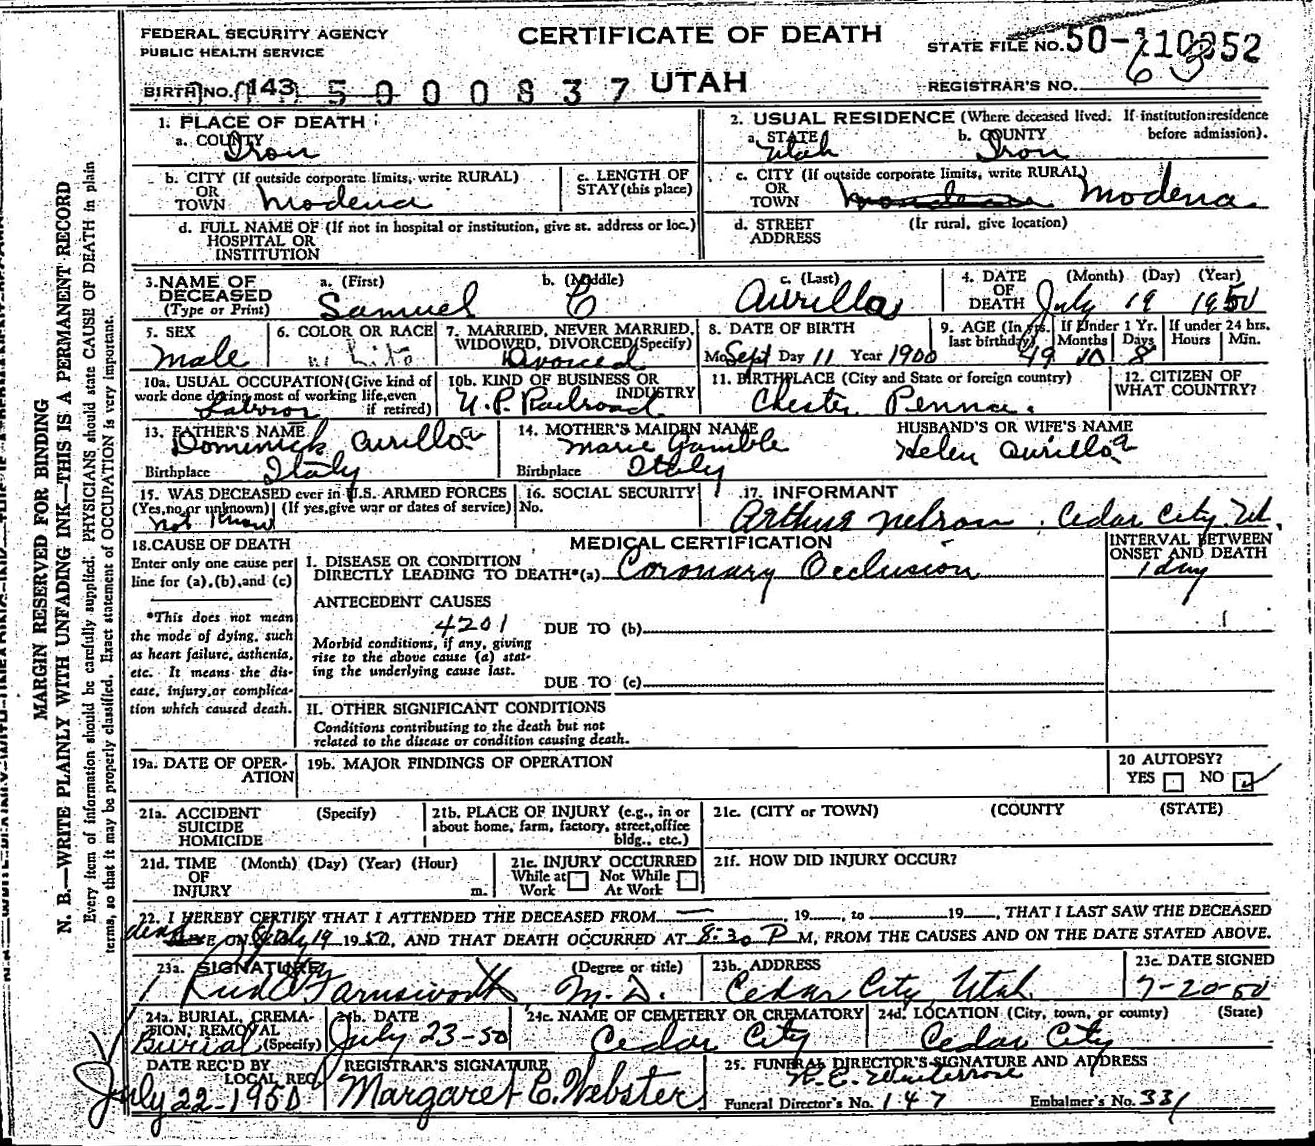 FEDERAL SECURITY AGENCY
PUBLIC HEALTH SERVICE
CERTIFICATE OF DEATH
UTAH
STATE FILE NO. 50-110352
REGISTRAR'S NO. 63
BIRTH NO. 143 5000837
1. PLACE OF DEATH
a. COUNTY Iron
2. USUAL RESIDENCE (Where deceased lived. If institution: residence before admission).
a. STATE Utah b. COUNTY Iron
b. CITY (If outside corporate limits, write RURAL) OR TOWN Modena
c. LENGTH OF STAY (this place)
c. CITY (If outside corporate limits, write RURAL) OR TOWN Modena
d. FULL NAME OF (If not in hospital or institution, give st. address or loc.) HOSPITAL OR INSTITUTION
d. STREET ADDRESS (If rural, give location)
3. NAME OF DECEASED (Type or Print)
a. (First) Samuel b. (Middle) C c. (Last) Aurilla
4. DATE OF DEATH (Month) (Day) (Year) July 19 1950
5. SEX Male
6. COLOR OR RACE White
7. MARRIED, NEVER MARRIED, WIDOWED, DIVORCED (Specify) Divorced
8. DATE OF BIRTH Mo Sept Day 11 Year 1900
9. AGE (In yrs. last birthday) 49 If Under 1 Yr. Months 10 Days 8 If under 24 hrs. Hours Min.
10a. USUAL OCCUPATION (Give kind of work done during most of working life, even if retired) Laborer
10b. KIND OF BUSINESS OR INDUSTRY U.P. Railroad
11. BIRTHPLACE (City and State or foreign country) Chester Penna.
12. CITIZEN OF WHAT COUNTRY?
13. FATHER'S NAME Dominick Aurilla
Birthplace Italy
14. MOTHER'S MAIDEN NAME Marie Gamble
Birthplace Italy
HUSBAND'S OR WIFE'S NAME Helen Aurilla
15. WAS DECEASED ever in U.S. ARMED FORCES (Yes, no or unknown) (If yes, give war or dates of service) not Know
16. SOCIAL SECURITY No.
17. INFORMANT Arthur Nelson, Cedar City, Ut.
18. CAUSE OF DEATH
Enter only one cause per line for (a), (b), and (c)
*This does not mean the mode of dying, such as heart failure, asthenia, etc. It means the disease, injury, or complication which caused death.
MEDICAL CERTIFICATION
INTERVAL BETWEEN ONSET AND DEATH
I. DISEASE OR CONDITION DIRECTLY LEADING TO DEATH*(a) Coronary Occlusion 1 day
ANTECEDENT CAUSES
4201
DUE TO (b)
Morbid conditions, if any, giving rise to the above cause (a) stating the underlying cause last.
DUE TO (c)
II. OTHER SIGNIFICANT CONDITIONS
Conditions contributing to the death but not related to the disease or condition causing death.
19a. DATE OF OPERATION
19b. MAJOR FINDINGS OF OPERATION
20 AUTOPSY? YES NO
21a. ACCIDENT SUICIDE HOMICIDE (Specify)
21b. PLACE OF INJURY (e.g., in or about home, farm, factory, street, office bldg., etc.)
21c. (CITY or TOWN) (COUNTY) (STATE)
21d. TIME OF INJURY (Month) (Day) (Year) (Hour) m.
21e. INJURY OCCURRED While at Work Not While At Work
21f. HOW DID INJURY OCCUR?
22. I HEREBY CERTIFY THAT I ATTENDED THE DECEASED FROM — , 19 , to 19 , THAT I LAST SAW THE DECEASED
died ON July 19 1950, AND THAT DEATH OCCURRED AT 8:30 P M, FROM THE CAUSES AND ON THE DATE STATED ABOVE.
23a. SIGNATURE Farnsworth (Degree or title) M.D.
23b. ADDRESS Cedar City, Utah
23c. DATE SIGNED 7-20-50
24a. BURIAL, CREMATION, REMOVAL (Specify) Burial
24b. DATE July 23-50
24c. NAME OF CEMETERY OR CREMATORY Cedar City
24d. LOCATION (City, town, or county) (State) Cedar City
DATE REC'D BY LOCAL REG. July 22-1950
REGISTRAR'S SIGNATURE Margaret C. Webster
25. FUNERAL DIRECTOR'S SIGNATURE AND ADDRESS
Funeral Director's No. 147 Embalmer's No. 331
MARGIN RESERVED FOR BINDING
N. B.—WRITE PLAINLY WITH UNFADING INK—THIS IS A PERMANENT RECORD
Every item of information should be carefully supplied. PHYSICIANS should state CAUSE OF DEATH in plain
terms, so that it may be properly classified. Exact statement of OCCUPATION is very important.